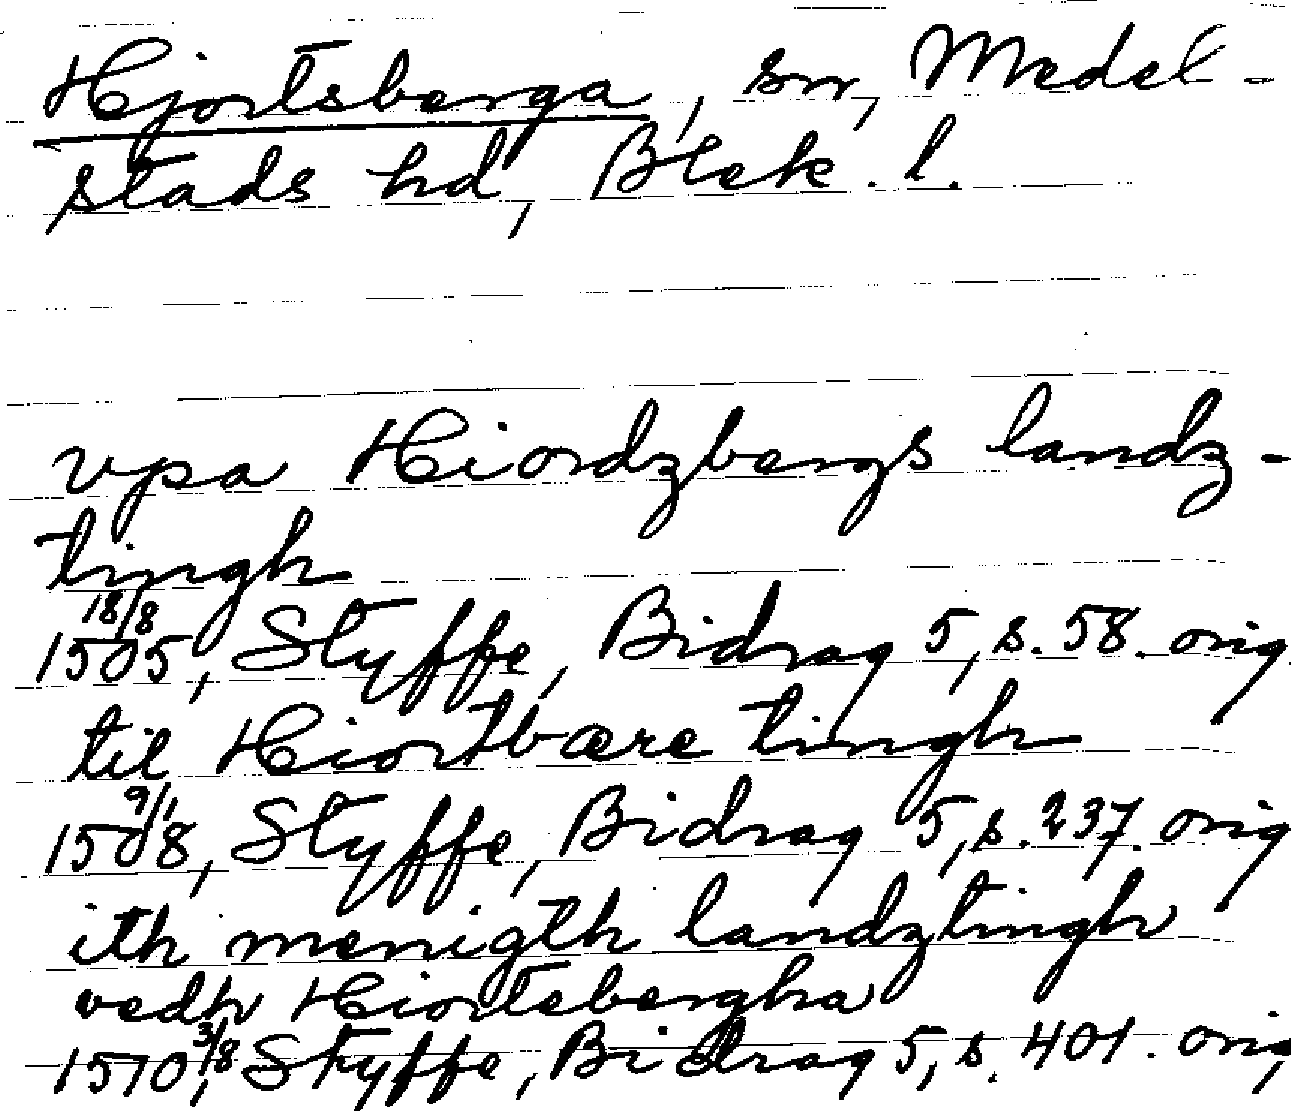 Hjortsberga, sn, Medel-
stads hd, Blek. l.
vpa Hiordzbergs landz-
tingh
18/8
1505, Styffe, Bidrag 5, s. 58. orig
til Hiortbære tingh
9/1
1508, Styffe, Bidrag 5, s. 237. orig
ith menigth landztingh
vedh Hiortebergha
3/8
1510, Styffe, Bidrag 5, s. 401. orig